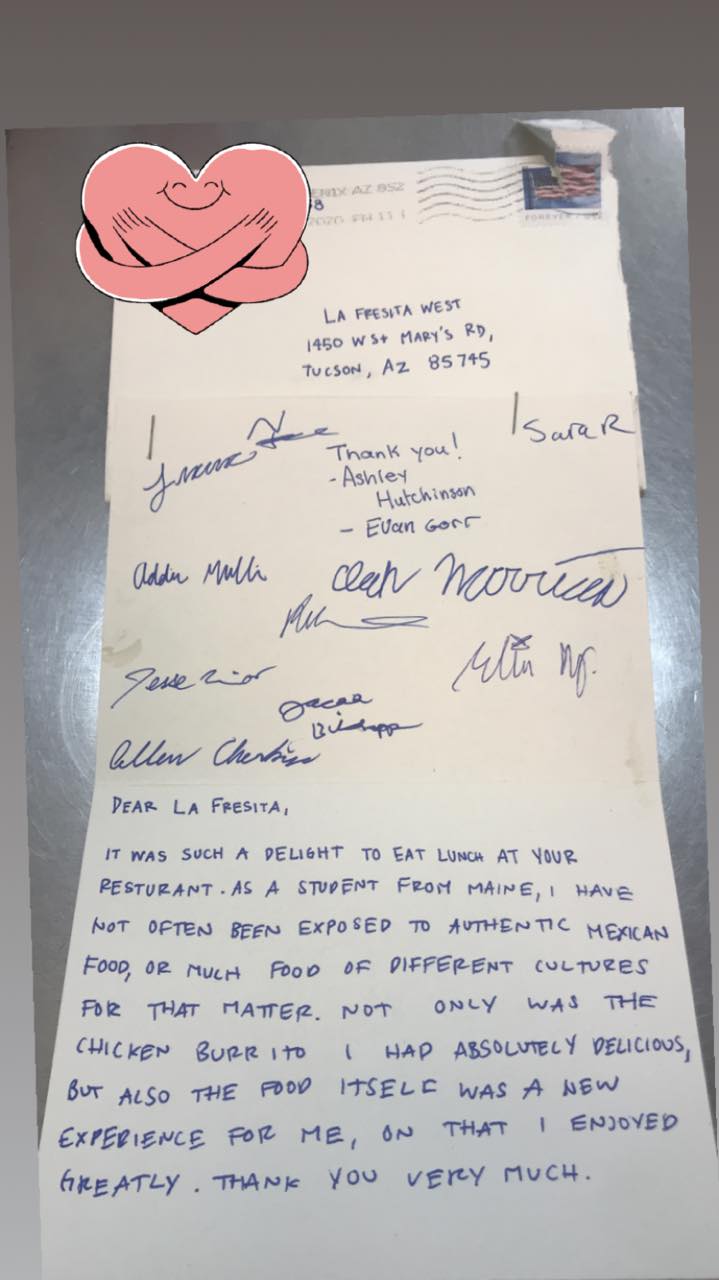 AZ 852
2020 PM
FOREVER
LA FRESITA WEST
1450 W St MARY'S RD,
TUCSON, AZ 85745
Sara R
Thank you!
- Ashley
Hutchinson
- Evan Gorr
Allen
DEAR LA FRESITA,
IT WAS SUCH A DELIGHT TO EAT LUNCH AT YOUR
RESTURANT. AS A STUDENT FROM MAINE, I HAVE
NOT OFTEN BEEN EXPOSED TO AUTHENTIC MEXICAN
FOOD, OR MUCH FOOD OF DIFFERENT CULTURES
FOR THAT MATTER. NOT ONLY WAS THE
CHICKEN BURRITO I HAD ABSOLUTELY DELICIOUS,
BUT ALSO THE FOOD ITSELF WAS A NEW
EXPERIENCE FOR ME, ON THAT I ENJOYED
GREATLY. THANK YOU VERY MUCH.